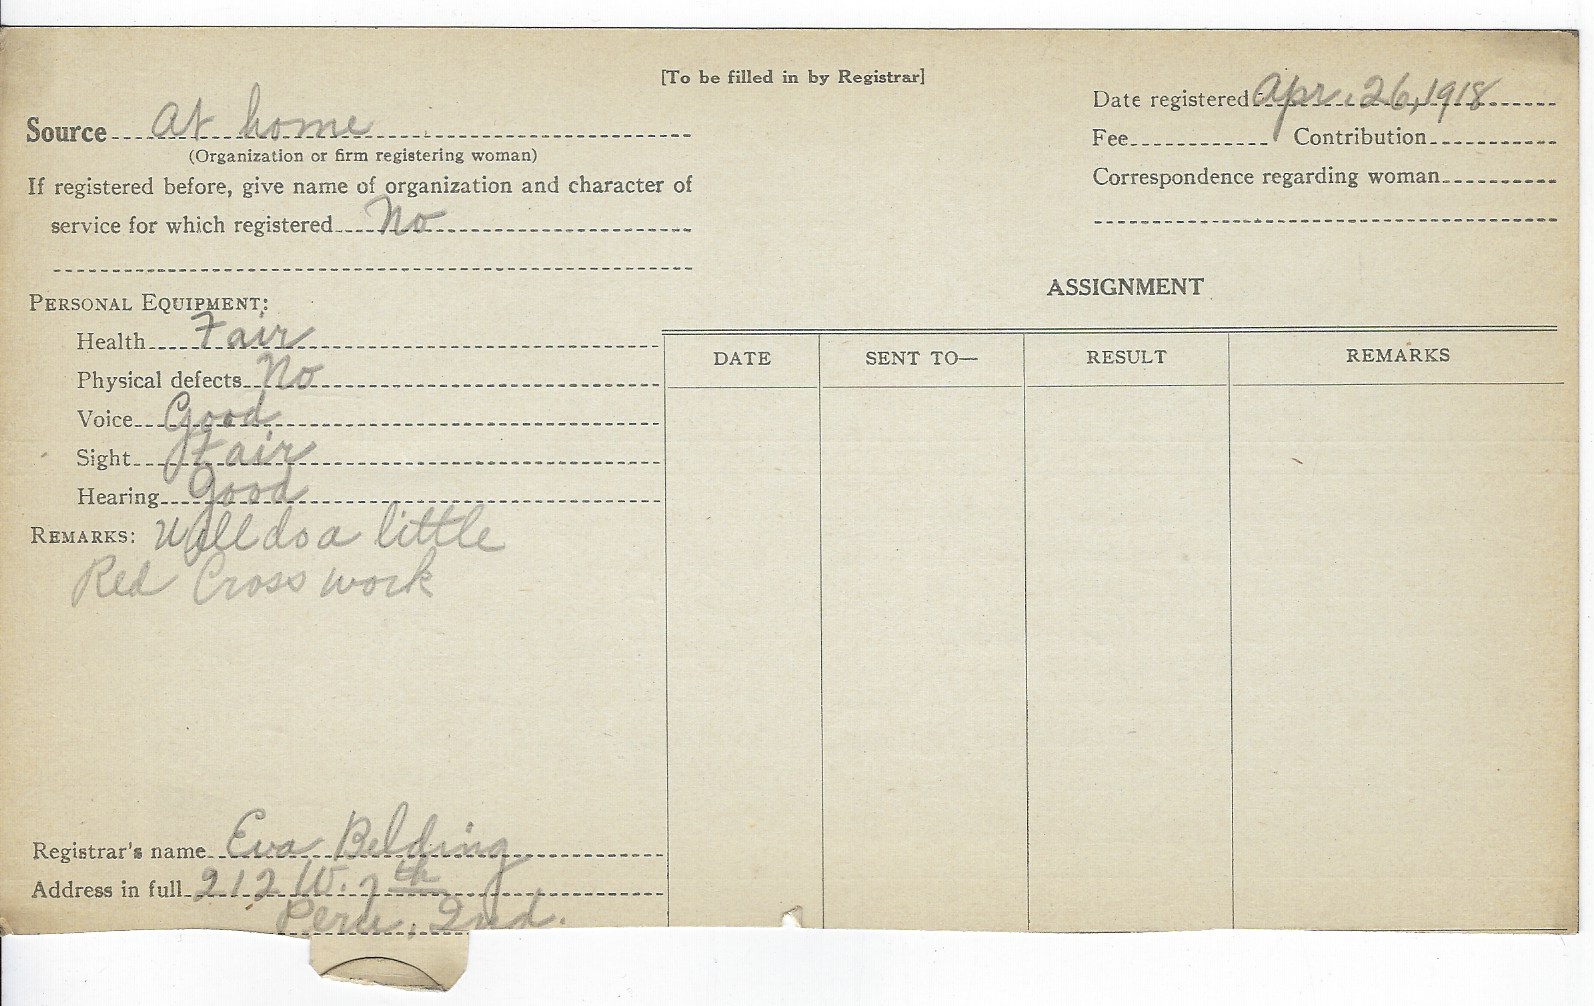 [To be filled in by Registrar]
Source At home
(Organization or firm registering woman)
If registered before, give name of organization and character of
service for which registered No
Date registered Apr. 26, 1918
Fee Contribution
Correspondence regarding woman
PERSONAL EQUIPMENT:
Health Fair
Physical defects No
Voice Good
Sight Fair
Hearing Good
REMARKS: Will do a little
Red Cross work
ASSIGNMENT
DATE SENT TO— RESULT REMARKS
Registrar's name Eva Belding
Address in full 212 W. 7th
Peru, Ind.